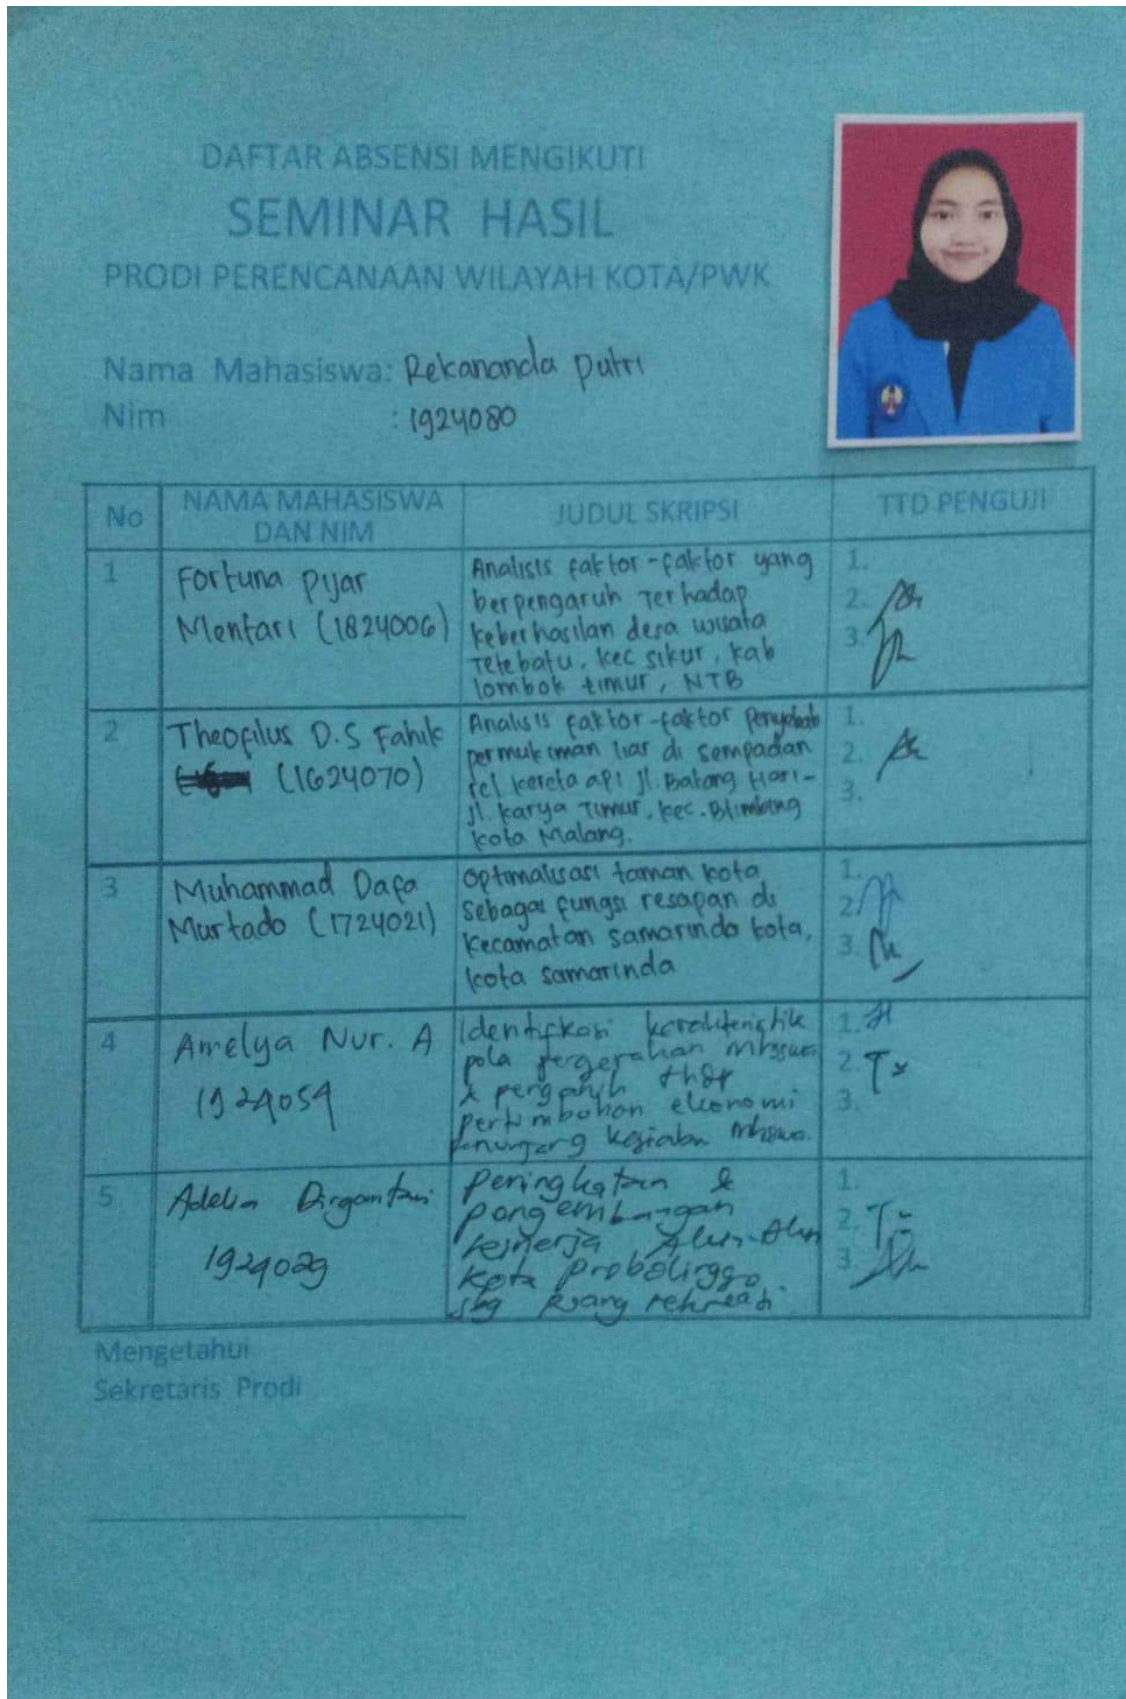 DAFTAR ABSENSI MENGIKUTI
SEMINAR HASIL
PRODI PERENCANAAN WILAYAH KOTA/PWK
Nama Mahasiswa: Rekananda Putri
Nim : 1924080
No
NAMA MAHASISWA
DAN NIM
JUDUL SKRIPSI
TTD PENGUJI
1
Fortuna Pijar
Mentari (1824006)
Analisis faktor-faktor yang
berpengaruh Terhadap
keberhasilan desa wisata
Tetebatu, kec sikur, kab
lombok timur, NTB
1.
2.
3.
2
Theofilus D.S Fahik
(1624070)
Analisis faktor-faktor Penyebab
permukiman liar di sempadan
rel kereta api jl. Batang Hari-
jl. Karya Timur, kec. Blimbing
kota Malang.
1.
2.
3.
3
Muhammad Dafa
Murtado (1724021)
Optimalisasi taman kota
sebagai fungsi resapan di
kecamatan samarinda kota,
kota samarinda
1.
2.
3.
4
Amelya Nur. A
1924054
Identifikasi karakteristik
pola pergerakan
&
ekonomi
1.
2.
3.
5
Adelia Dirgantari
1924029
Peningkatan &
pengembangan
kinerja Alun-Alun
Kota Probolinggo
sbg Ruang rekreasi.
1.
2.
3.
Mengetahui
Sekretaris Prodi